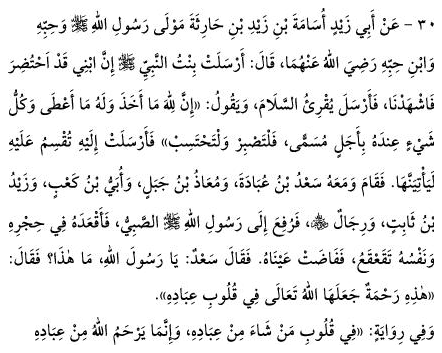 ٣٠ - عَنْ أَبِي زَيْدٍ أُسَامَةَ بْنِ زَيْدِ بْنِ حَارِثَةَ مَوْلَى رَسُولِ اللهِ ﷺ وَحِبِّهِ
وَابْنِ حِبِّهِ رَضِيَ اللهُ عَنْهُمَا، قَالَ: أَرْسَلَتْ بِنْتُ النَّبِيِّ ﷺ إِنَّ ابْنِي قَدْ احْتُضِرَ
فَاشْهَدْنَا، فَأَرْسَلَ يُقْرِئُ السَّلَامَ، وَيَقُولُ: «إِنَّ لِلهِ مَا أَخَذَ وَلَهُ مَا أَعْطَى وَكُلُّ
شَيْءٍ عِنْدَهُ بِأَجَلٍ مُسَمًّى، فَلْتَصْبِرْ وَلْتَحْتَسِبْ» فَأَرْسَلَتْ إِلَيْهِ تُقْسِمُ عَلَيْهِ
لَيَأْتِيَنَّهَا. فَقَامَ وَمَعَهُ سَعْدُ بْنُ عُبَادَةَ، وَمُعَاذُ بْنُ جَبَلٍ، وَأُبَيُّ بْنُ كَعْبٍ، وَزَيْدُ
بْنُ ثَابِتٍ، وَرِجَالٌ ﷺ، فَرُفِعَ إِلَى رَسُولِ اللهِ ﷺ الصَّبِيُّ، فَأَقْعَدَهُ فِي حِجْرِهِ
وَنَفْسُهُ تَقَعْقَعُ، فَفَاضَتْ عَيْنَاهُ. فَقَالَ سَعْدٌ: يَا رَسُولَ اللهِ، مَا هٰذَا؟ فَقَالَ:
«هٰذِهِ رَحْمَةٌ جَعَلَهَا اللهُ تَعَالَى فِي قُلُوبِ عِبَادِهِ».
وَفِي رِوَايَةٍ: «فِي قُلُوبِ مَنْ شَاءَ مِنْ عِبَادِهِ، وَإِنَّمَا يَرْحَمُ اللهُ مِنْ عِبَادِهِ